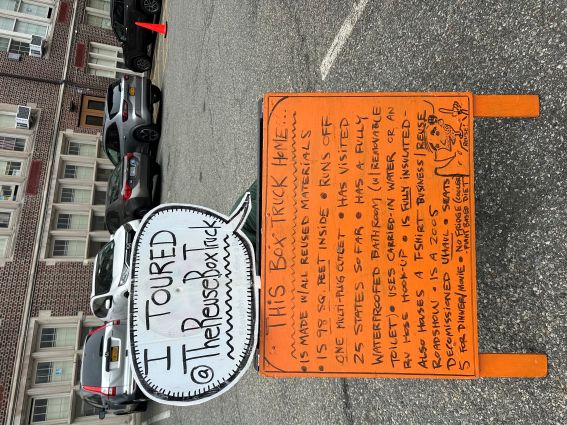 I TOURED
@TheReuseBoxTruck
THIS BOX TRUCK HOME...
• IS MADE W/ALL REUSED MATERIALS
• IS 98 SQ. FEET INSIDE • RUNS OFF
ONE MULTI-PLUG OUTLET • HAS VISITED
25 STATES SO FAR • HAS A FULLY
WATERPROOFED BATHROOM (W/REMOVABLE
TOILET) • USES CARRIED-IN WATER OR AN
RV HOSE HOOK-UP • IS FULLY INSULATED -
ALSO HOUSES A T-SHIRT BUSINESS/REUSE
ROADSHOW • IS A 2005
DECOMMISSIONED UHAUL • SEATS
5 FOR DINNER/MOVIE • NO FRIDGE (COOLER)
PLANT BASED DIET